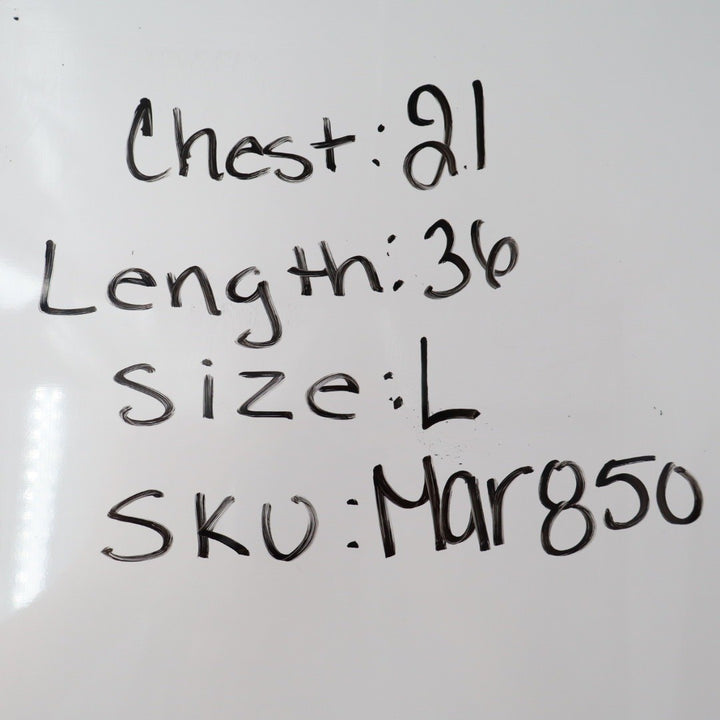 Chest: 21
Length: 36
Size: L
SKU: Mar850